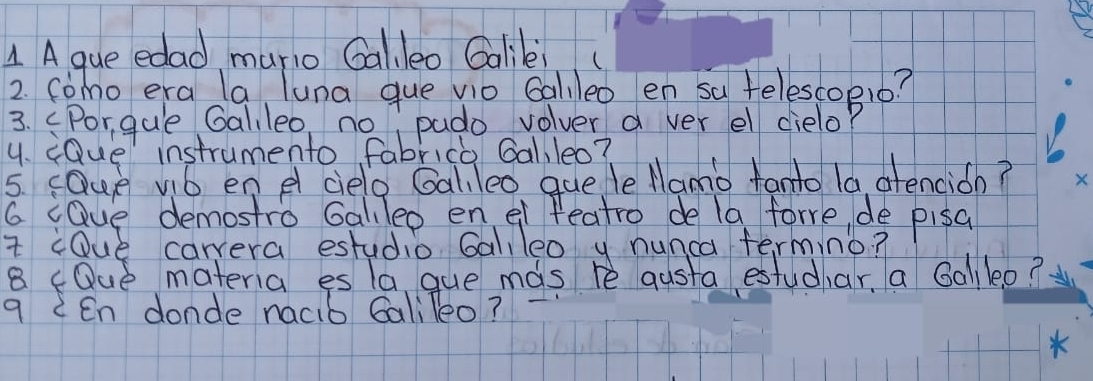 1 A que edad murio Galileo Galilei (
2. Como era la luna que vio Galileo en su telescopio?
3. ¿Por que Galileo no pudo volver a ver el cielo?
4. ¿Que instrumento fabrico Galileo?
5. ¿Qué vió en el cielo Galileo que le llamó tanto la atención?
6 ¿Que demostro Galileo en el teatro de la torre de pisa
7 ¿Qué carrera estudio Galileo y nunca terminó?
8 ¿Qué materia es la que más le gusta estudiar a Galileo?
9 ¿En donde nació Galileo?